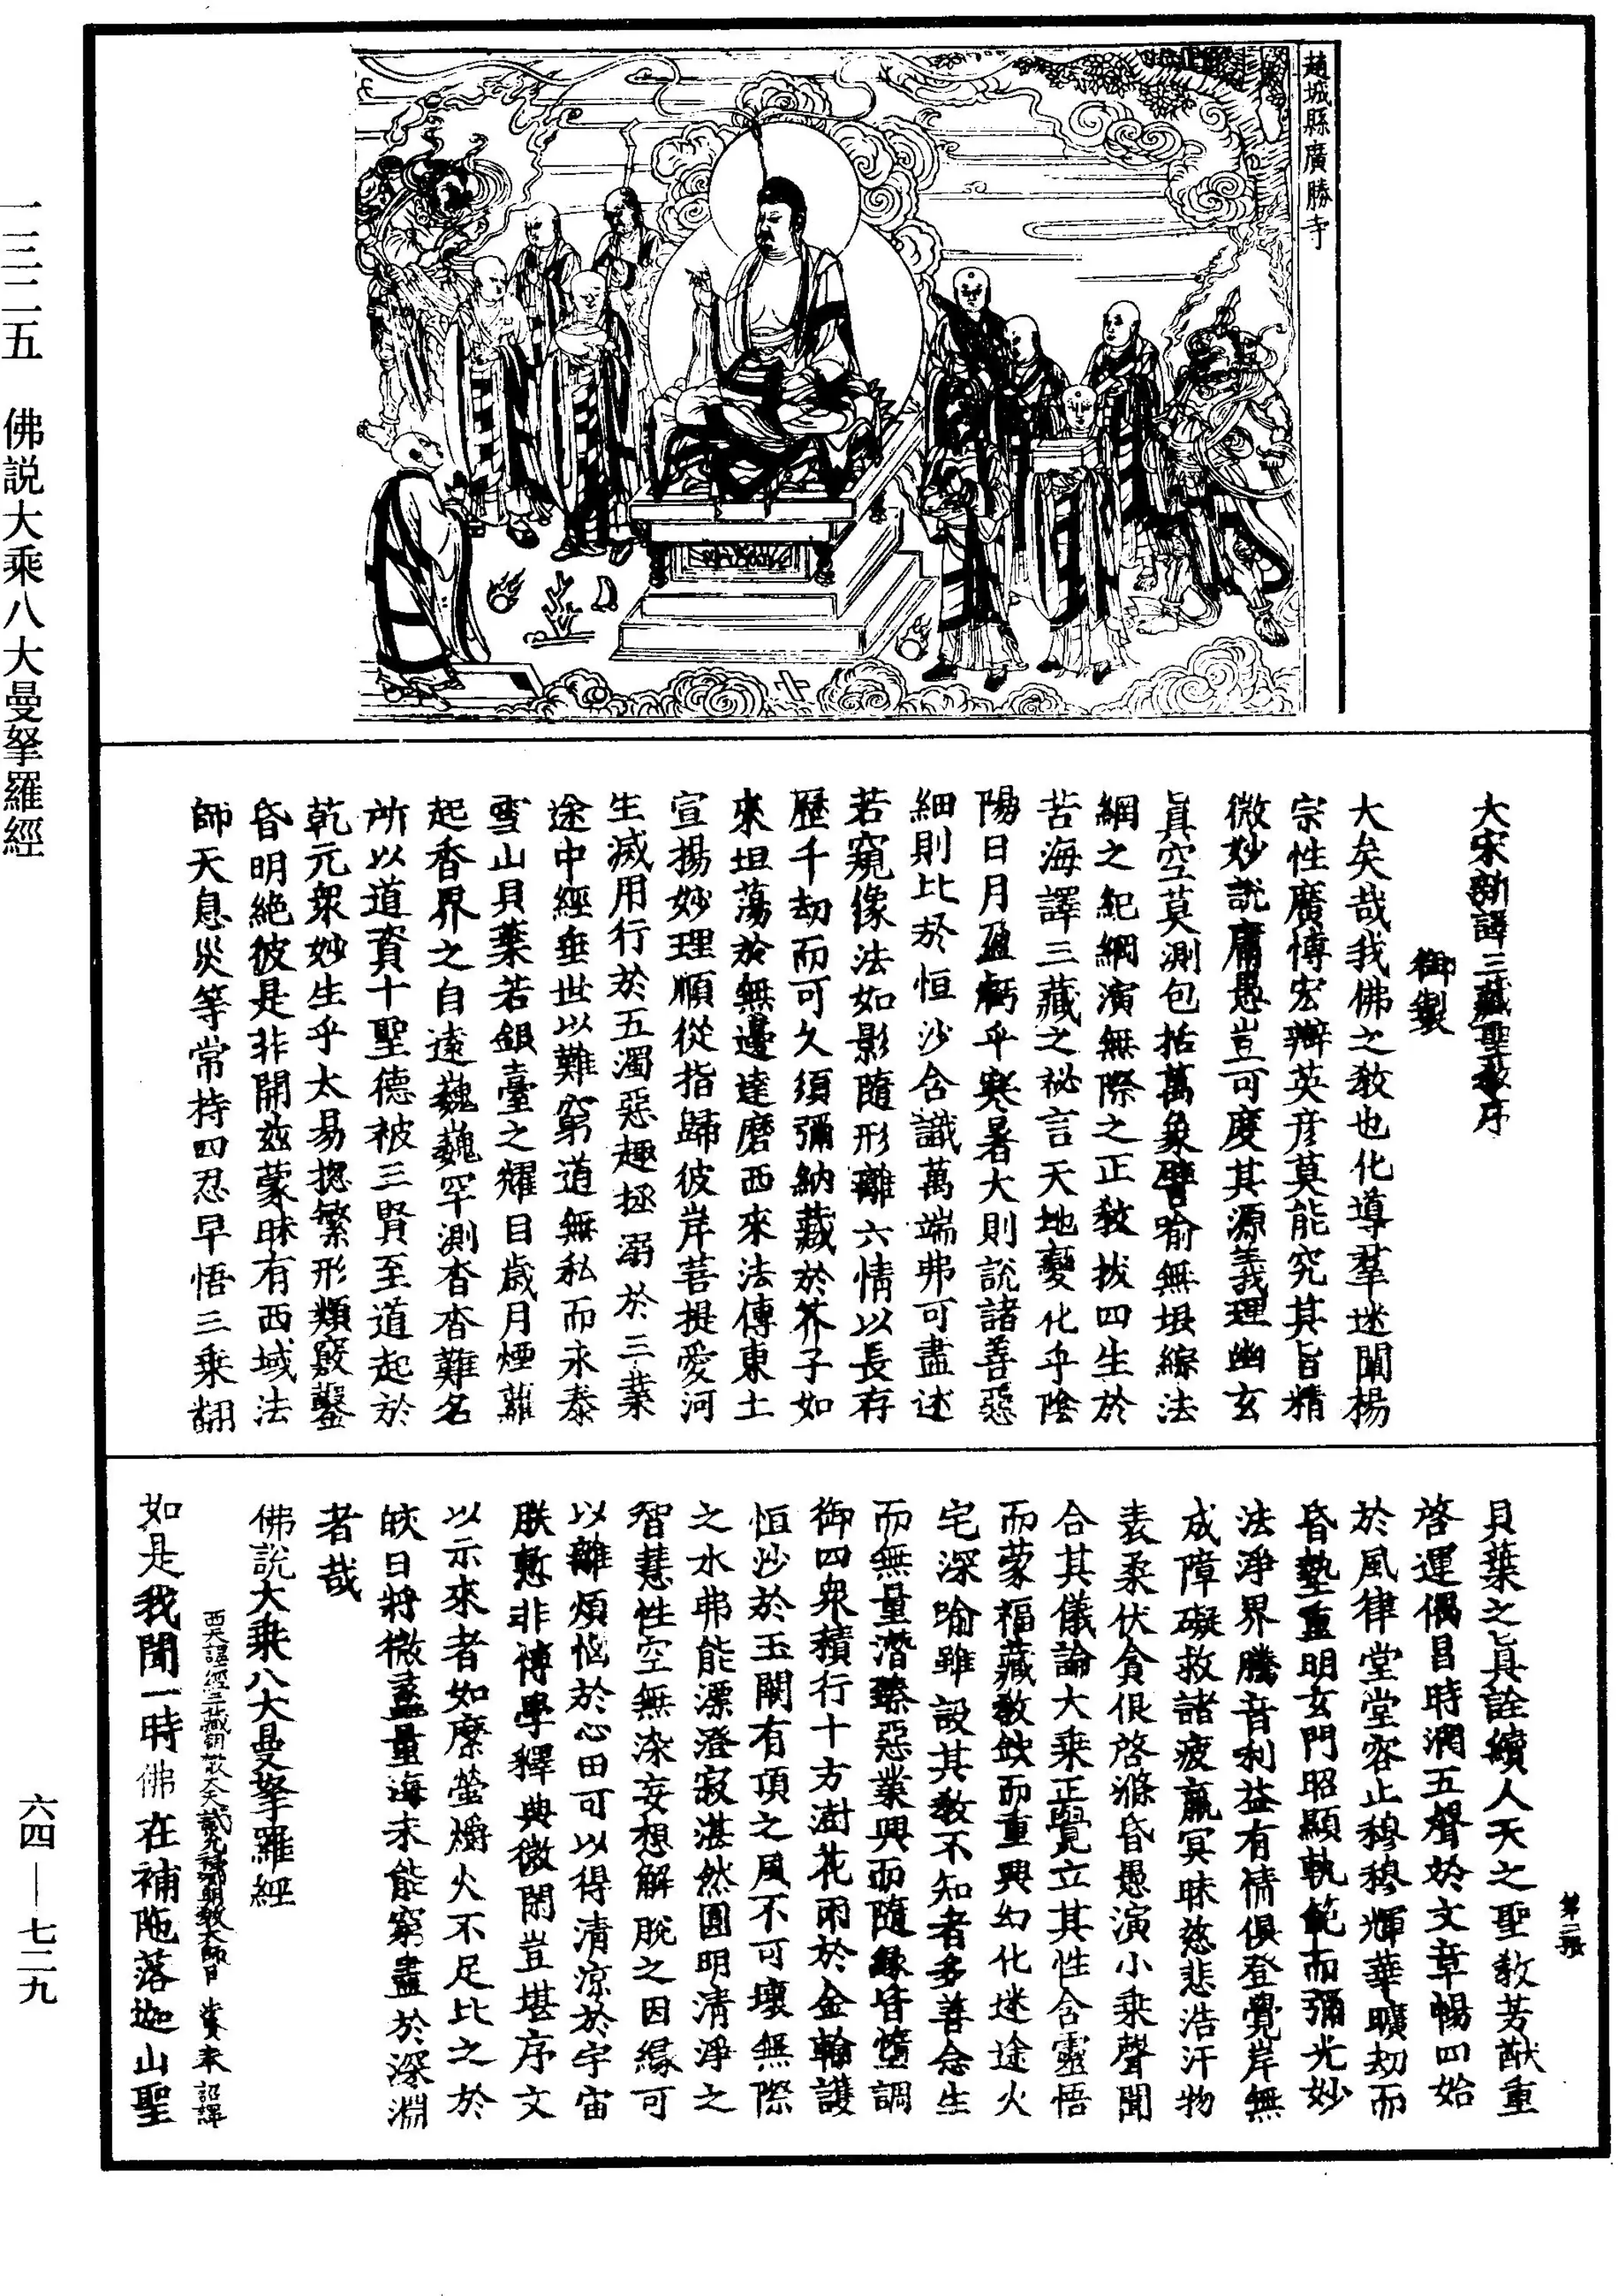 趙城縣廣勝寺
大宋新譯三藏聖教序
御製
大矣哉我佛之教也化導羣迷闡揚
宗性廣博宏辯英彦莫能究其旨精
微妙說庸愚豈可度其源義理幽玄
真空莫測包括萬象譬喻無垠綜法
網之紀綱演無際之正教拔四生於
苦海譯三藏之祕言天地變化乎陰
陽日月盈虧乎寒暑大則說諸善惡
細則比於恒沙含識萬端弗可盡述
若窺像法如影隨形離六情以長存
歷千劫而可久須彌納藏於芥子如
來坦蕩於無邊達磨西來法傳東土
宣揚妙理順從指歸彼岸菩提愛河
生滅用行於五濁惡趣拯溺於三業
途中經垂世以難窮道無私而永泰
雪山貝葉若銀臺之耀目歲月煙蘿
起香界之自遠巍巍罕測杳杳難名
所以道資十聖德被三賢至道起於
乾元衆妙生乎太易揔繁形類竅鑿
昏明絶彼是非開兹蒙昧有西域法
師天息災等常持四忍早悟三乘翻
第二張
貝葉之真詮續人天之聖教芳猷重
啓運偶昌時潤五聲於文章暢四始
於風律堂堂容止穆穆輝華曠劫而
昏墊重明玄門昭顯軌範而彌光妙
法淨界騰音利益有情俱登覺岸無
成障礙救諸疲羸冥昧慈悲浩汗物
表柔伏貪佷啓滌昏愚演小乘聲聞
合其儀論大乘正覺立其性含靈悟
而蒙福藏教缺而重興幻化迷途火
宅深喻雖設其教不知者多善念生
而無量潛臻惡業興而隨緣皆墮調
御四衆積行十方澍花雨於金輪護
恒沙於玉闕有頂之風不可壞無際
之水弗能漂澄寂湛然圓明清淨之
智慧性空無染妄想解脫之因緣可
以離煩惱於心田可以得清涼於宇宙
朕慙非博學釋典微閑豈堪序文
以示來者如縻螢爝火不足比之於
皎日將微蠡量海未能窮盡於深淵
者哉
佛說大乘八大曼拏羅經
西天譯經三藏朝散大夫試光祿卿明教大師臣法賢奉詔譯
如是我聞一時佛在補陁落迦山聖
一三二五　佛説大乘八大曼拏羅經
六四—七二九